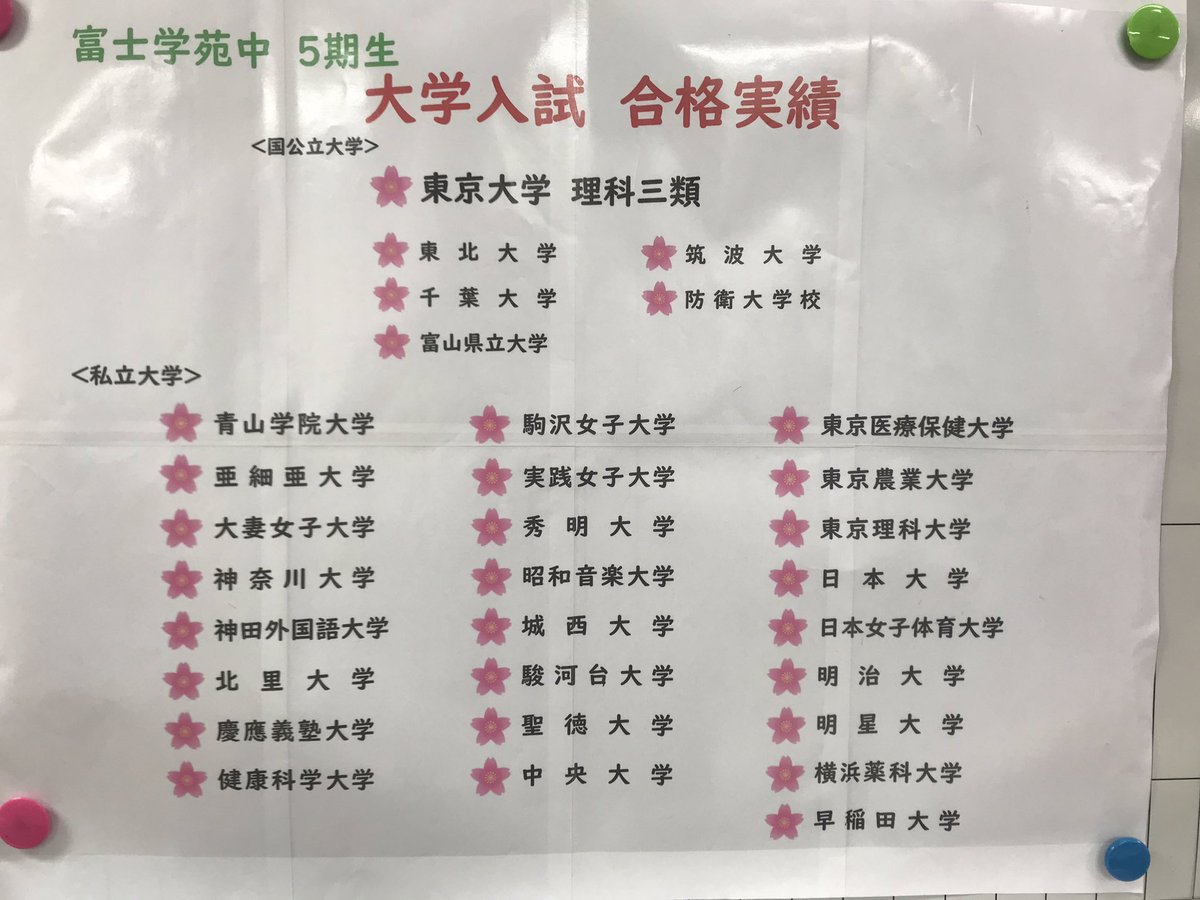 富士学苑中 5期生
大学入試 合格実績
<国公立大学>
東京大学 理科三類
東北大学 筑波大学
千葉大学 防衛大学校
富山県立大学
<私立大学>
青山学院大学 駒沢女子大学 東京医療保健大学
亜細亜大学 実践女子大学 東京農業大学
大妻女子大学 秀明大学 東京理科大学
神奈川大学 昭和音楽大学 日本大学
神田外国語大学 城西大学 日本女子体育大学
北里大学 駿河台大学 明治大学
慶應義塾大学 聖徳大学 明星大学
健康科学大学 中央大学 横浜薬科大学
早稲田大学